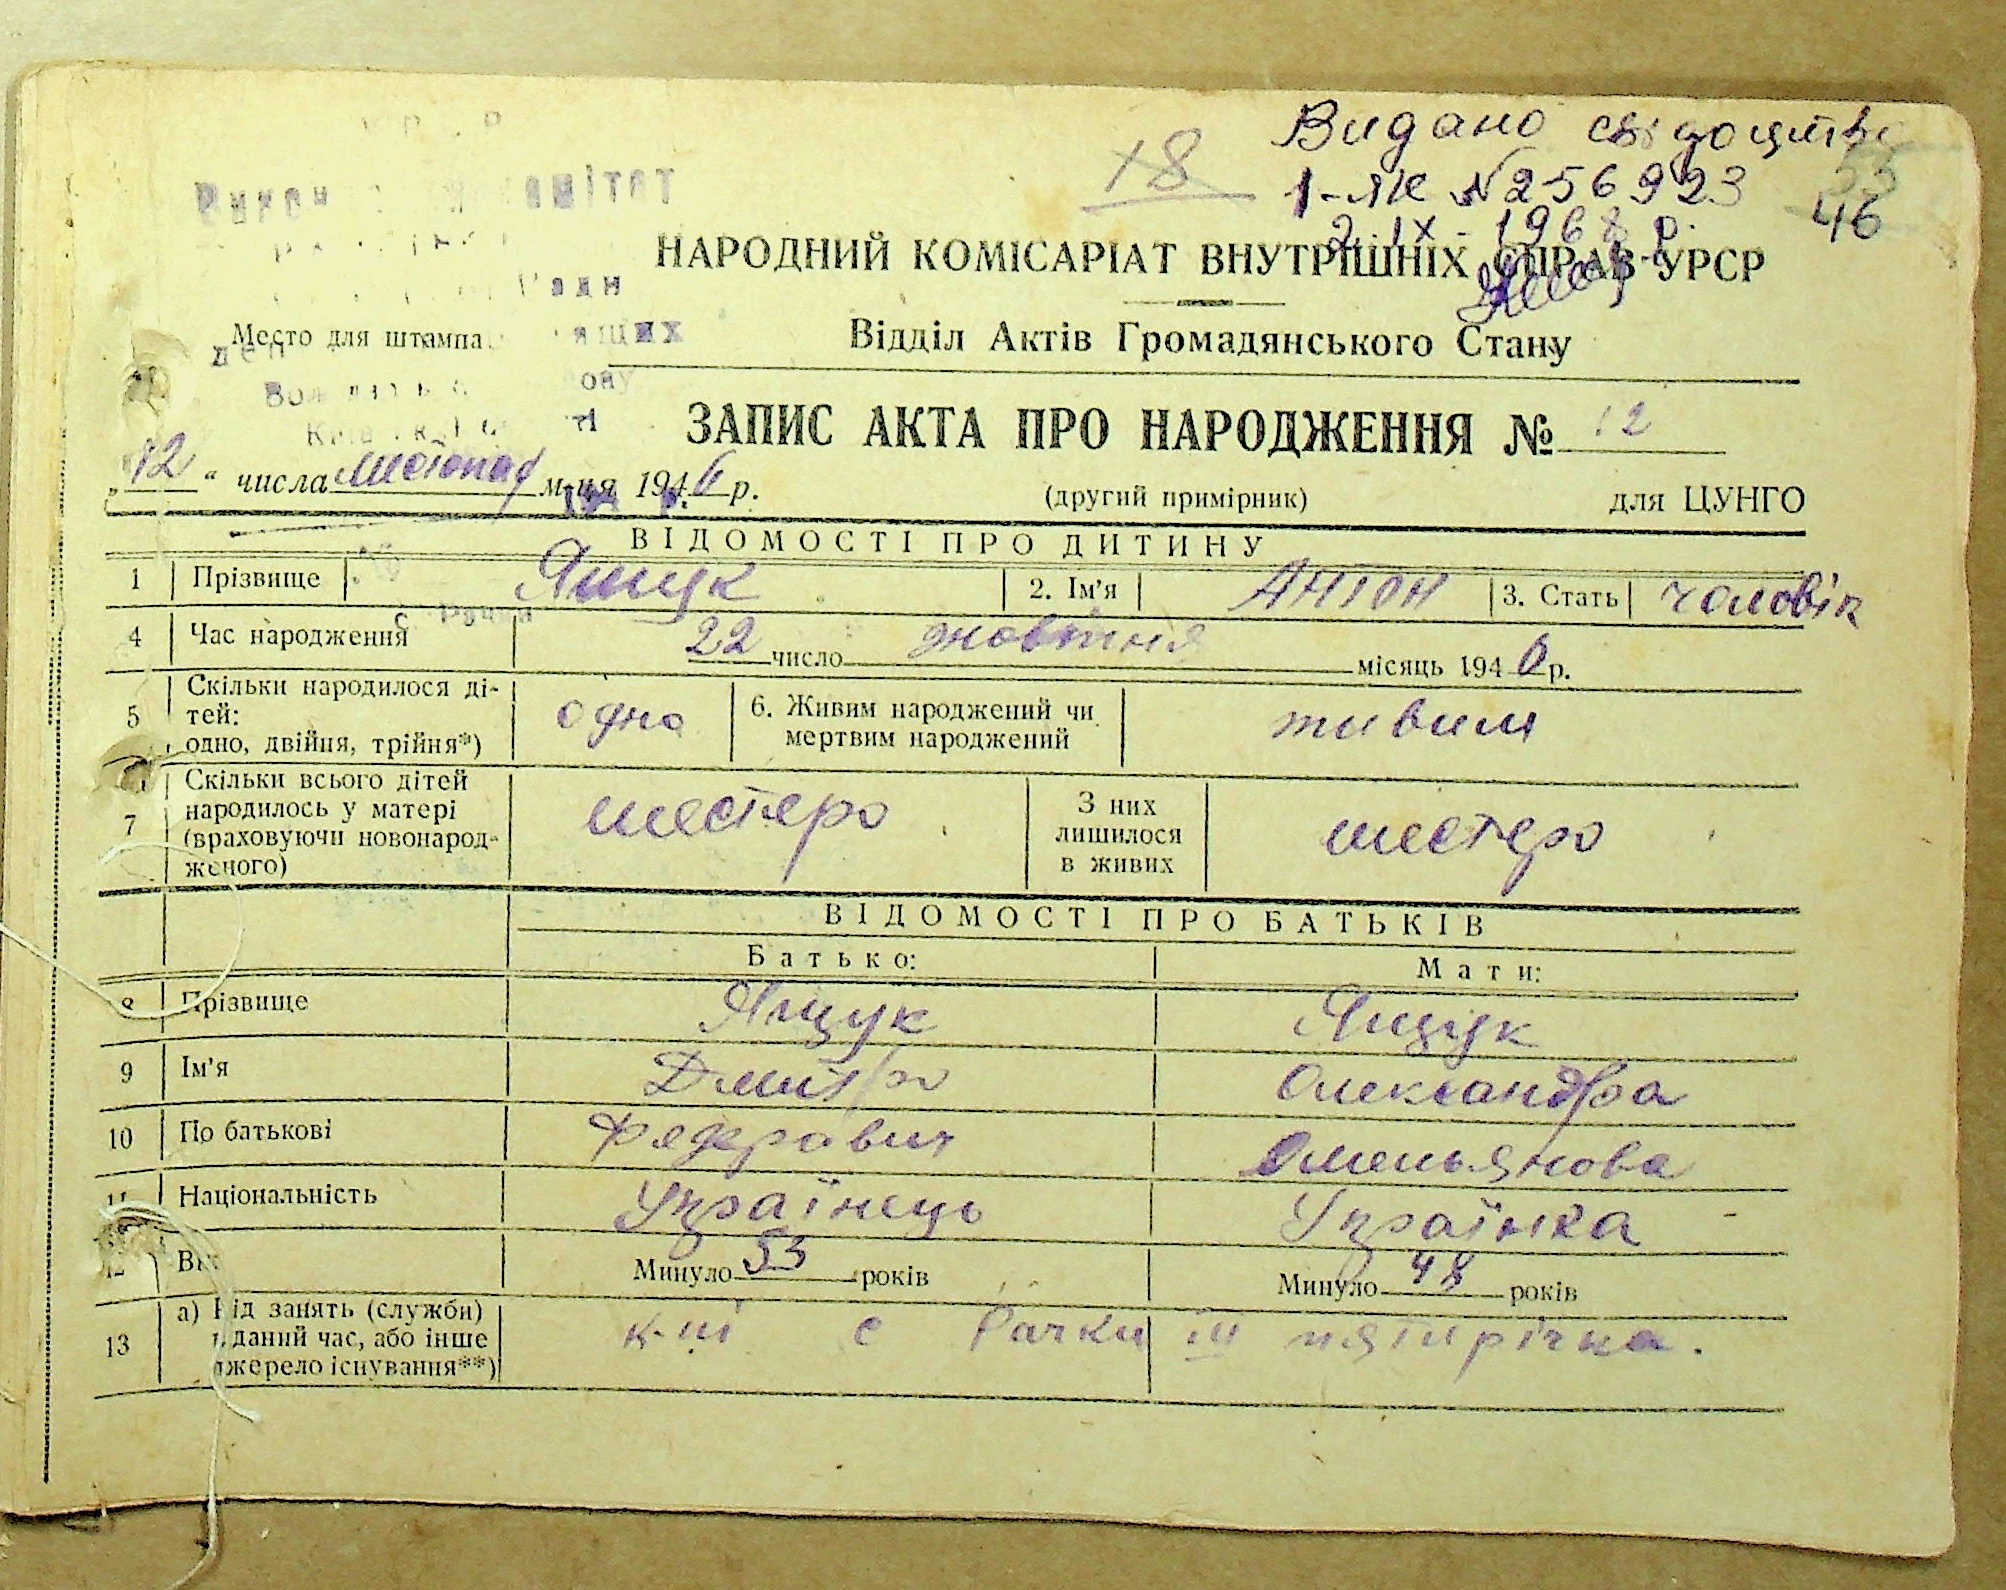 Видано свідоцтво
1-ЯК №256923
2.ІХ-1968 р.
18
46
НАРОДНИЙ КОМІСАРІАТ ВНУТРІШНІХ СПРАВ УРСР
Место для штампа
Відділ Актів Громадянського Стану
ЗАПИС АКТА ПРО НАРОДЖЕННЯ № 12
„12“ числа листопад м-ця 1946 р.
(другий примірник)
для ЦУНГО
ВІДОМОСТІ ПРО ДИТИНУ
1 Прізвище Ящук 2. Ім'я Антон 3. Стать чоловік
4 Час народження 22 число жовтня місяць 1946 р.
5 Скільки народилося ді-
тей:
одно, двійня, трійня*) одно 6. Живим народжений чи
мертвим народжений живим
7 Скільки всього дітей
народилось у матері
(враховуючи новонарод-
женого) шестеро З них
лишилося
в живих шестеро
ВІДОМОСТІ ПРО БАТЬКІВ
Батько: Мати:
8 Прізвище Ящук Ящук
9 Ім'я Дмитро Олександра
10 По батькові Федерович Омельянова
11 Національність Українець Українка
12 Минуло 53 років Минуло 48 років
13 а) Від занять (службн)
даний час, або інше
джерело існування**) к-пі с Рачки ІІІ пятирічка.